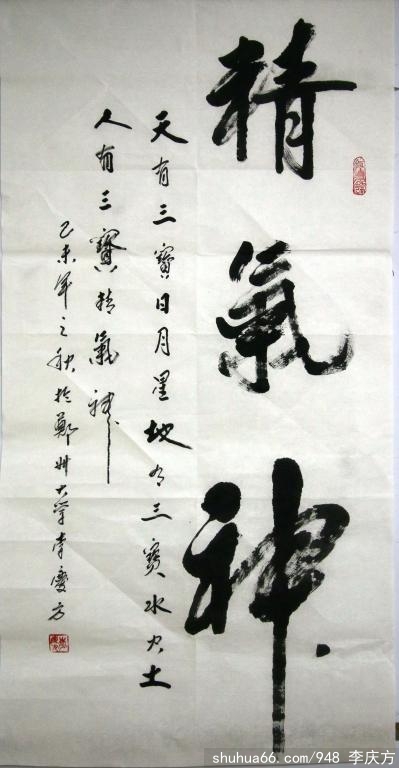 精氣神
天有三寶日月星地有三寶水火土
人有三寶精氣神
己未年之秋於鄭州大學李慶方
shuhua66.com/948 李庆方